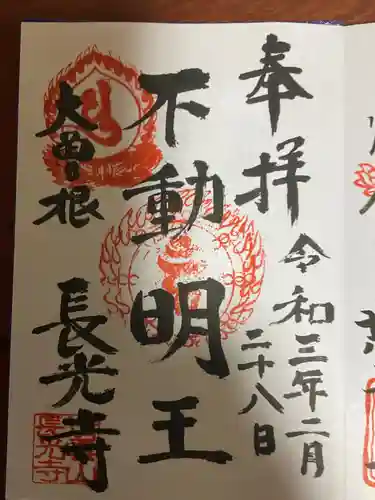 奉拝
令和三年二月
二十八日
不動明王
大曽根
長光寺